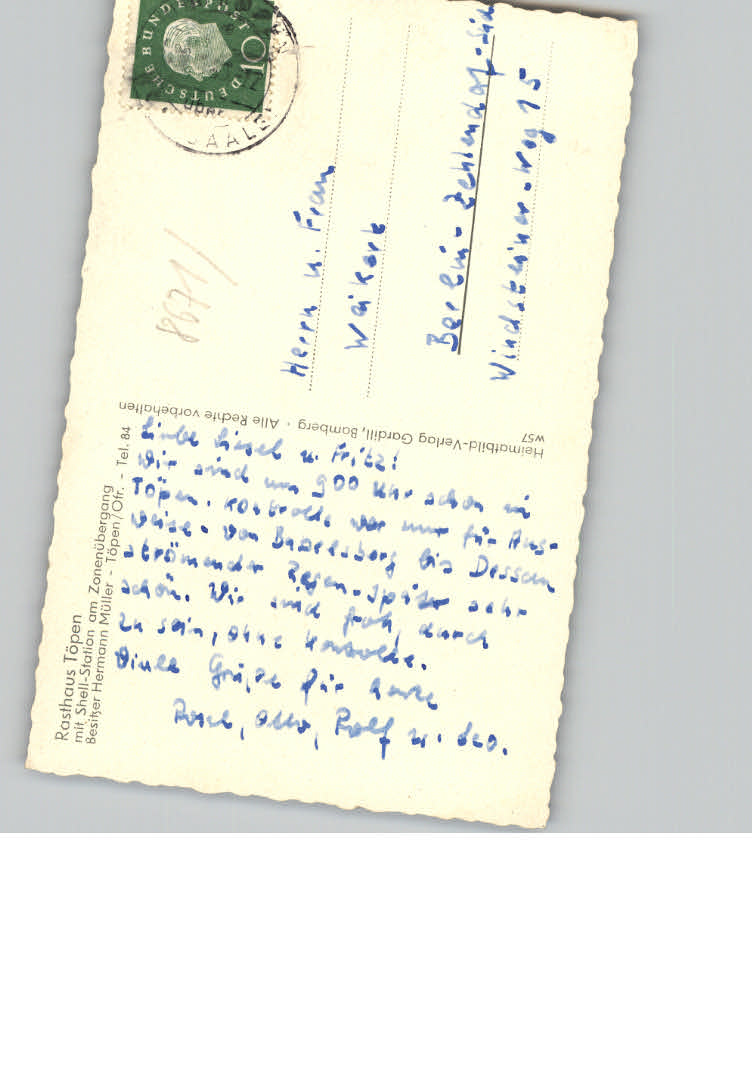 Rasthaus Töpen
mit Shell-Station am Zonenübergang
Besitzer Hermann Müller - Töpen/Ofr. - Tel. 84
Liebe Liesel u. Fritz!
Wir sind um 900 Uhr schon in
Töpen. Kontrolle war nur für Aus-
weise. Von Babelsberg bis Dessau
strömender Regen. Später sehr
schön. Wir sind froh, durch
zu sein, ohne Kontrolle.
Viele Grüße für heute
Otto, Rolf u.
Heimatbild-Verlag Gardill, Bamberg · Alle Rechte vorbehalten
W57
DEUTSCHE BUNDESPOST
10
SAALE
8671/
Herrn u. Frau
Weikert
Berlin-Zehlendorf-Süd
Windsteiner-Weg 15